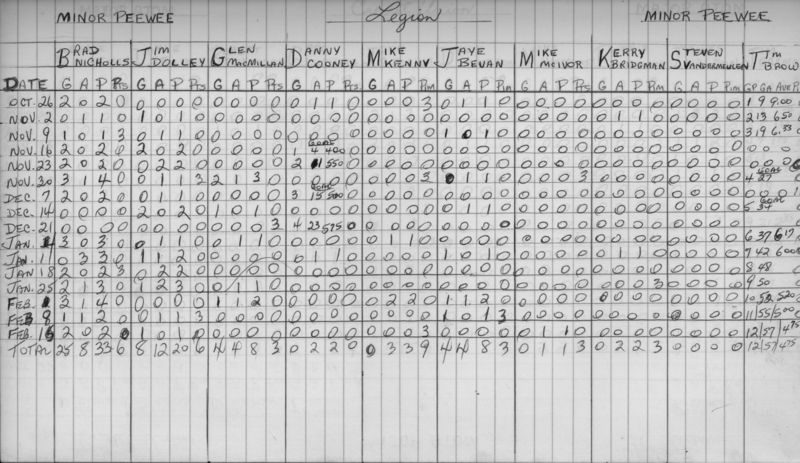 MINOR PEEWEE Legion MINOR PEEWEE
BRAD NICHOLLS JIM DOLLEY GLEN MACMILLAN DANNY COONEY MIKE KENNY JAYE BEVAN MIKE MCIVOR KERRY BRIDGMAN STEVEN VANDERMEULEN TIM BROW
DATE G A P Pts G A P Pts G A P Pts G A P Pts G A P Pim G A P Pim G A P Pim G A P Pim G A P Pim GP GA AVE P
OCT. 26 2 0 2 0 0 0 0 0 0 0 0 0 0 1 1 0 0 0 0 3 0 1 1 0 0 0 0 0 0 0 0 0 0 0 0 0 1 9 9.00
NOV. 2 0 1 1 0 1 0 1 0 0 0 0 0 0 0 0 0 0 0 0 0 0 0 0 0 0 0 0 0 0 1 1 0 0 0 0 0 2 13 6.50
NOV. 9 1 0 1 3 0 1 1 0 0 0 0 0 0 0 0 0 0 0 0 1 0 1 0 0 0 0 0 0 0 0 0 0 0 0 0 3 19 6.33
NOV. 16 2 0 2 0 2 0 2 0 0 0 0 0 1 GOAL 4 4.00 0 0 0 0 0 0 0 0 0 0 0 0 0 0 0 0 0 0 0 0 0 0 0
NOV. 23 2 0 2 0 0 2 2 0 0 0 0 0 2 11 5.50 0 0 0 0 0 0 0 0 0 0 0 0 0 0 0 0 0 0 0 0 0 0 0
NOV. 30 3 1 4 0 0 1 1 3 2 1 3 0 0 0 0 0 0 0 3 0 1 1 0 0 0 0 3 0 0 0 0 0 0 0 0 GOAL 4 27
DEC. 7 2 0 2 0 0 1 1 0 0 0 0 0 GOAL 3 15 5.00 0 0 0 0 0 0 0 0 0 0 0 0 0 0 0 0 0 0 0 0 0 0 0
DEC. 14 0 0 0 0 2 0 2 0 1 0 1 0 0 0 0 0 0 0 0 0 0 1 1 0 0 0 0 0 0 0 0 0 0 0 0 0 GOAL 5 34
DEC. 21 0 0 0 0 0 0 0 0 0 0 0 3 4 23 5.75 0 0 0 0 0 0 0 0 0 0 0 0 0 0 0 0 0 0 0 0
JAN. 4 3 0 3 0 0 1 1 0 0 1 1 0 0 0 0 0 0 1 1 0 0 0 0 0 0 0 0 0 0 0 0 0 0 0 0 0 6 37 6.17
JAN. 11 0 3 3 0 1 1 2 0 0 0 0 0 0 1 1 0 0 0 0 0 0 1 0 1 0 0 0 0 0 1 1 0 0 0 0 0 7 42 6.00
JAN 18 2 0 2 3 0 2 2 0 0 0 0 0 0 0 0 0 0 0 0 0 0 0 0 0 0 0 0 0 0 0 0 0 0 0 0 0 8 48
JAN. 25 2 1 3 0 1 2 3 0 0 1 1 0 0 0 0 0 0 0 0 0 0 0 0 0 0 0 0 0 0 0 0 3 0 0 0 0 9 50
FEB. 3 1 4 0 0 0 0 0 1 1 2 0 0 0 0 0 0 2 2 0 1 1 2 0 0 0 0 0 0 0 0 0 0 0 0 0 10 52 5.20
FEB 8 1 1 2 0 0 1 1 3 0 0 0 0 0 0 0 0 0 0 0 0 1 0 1 3 0 0 0 0 0 0 0 0 0 0 0 0 11 55 5.00
FEB. 16 2 0 2 0 1 0 1 0 0 0 0 0 0 0 0 0 0 0 0 3 0 0 0 0 0 1 1 0 0 0 0 0 0 0 0 0 12 57 4.75
TOTAL 25 8 33 6 8 12 20 6 4 4 8 3 0 2 2 0 0 3 3 9 4 4 8 3 0 1 1 3 0 2 2 3 0 0 0 0 12 57 4.75